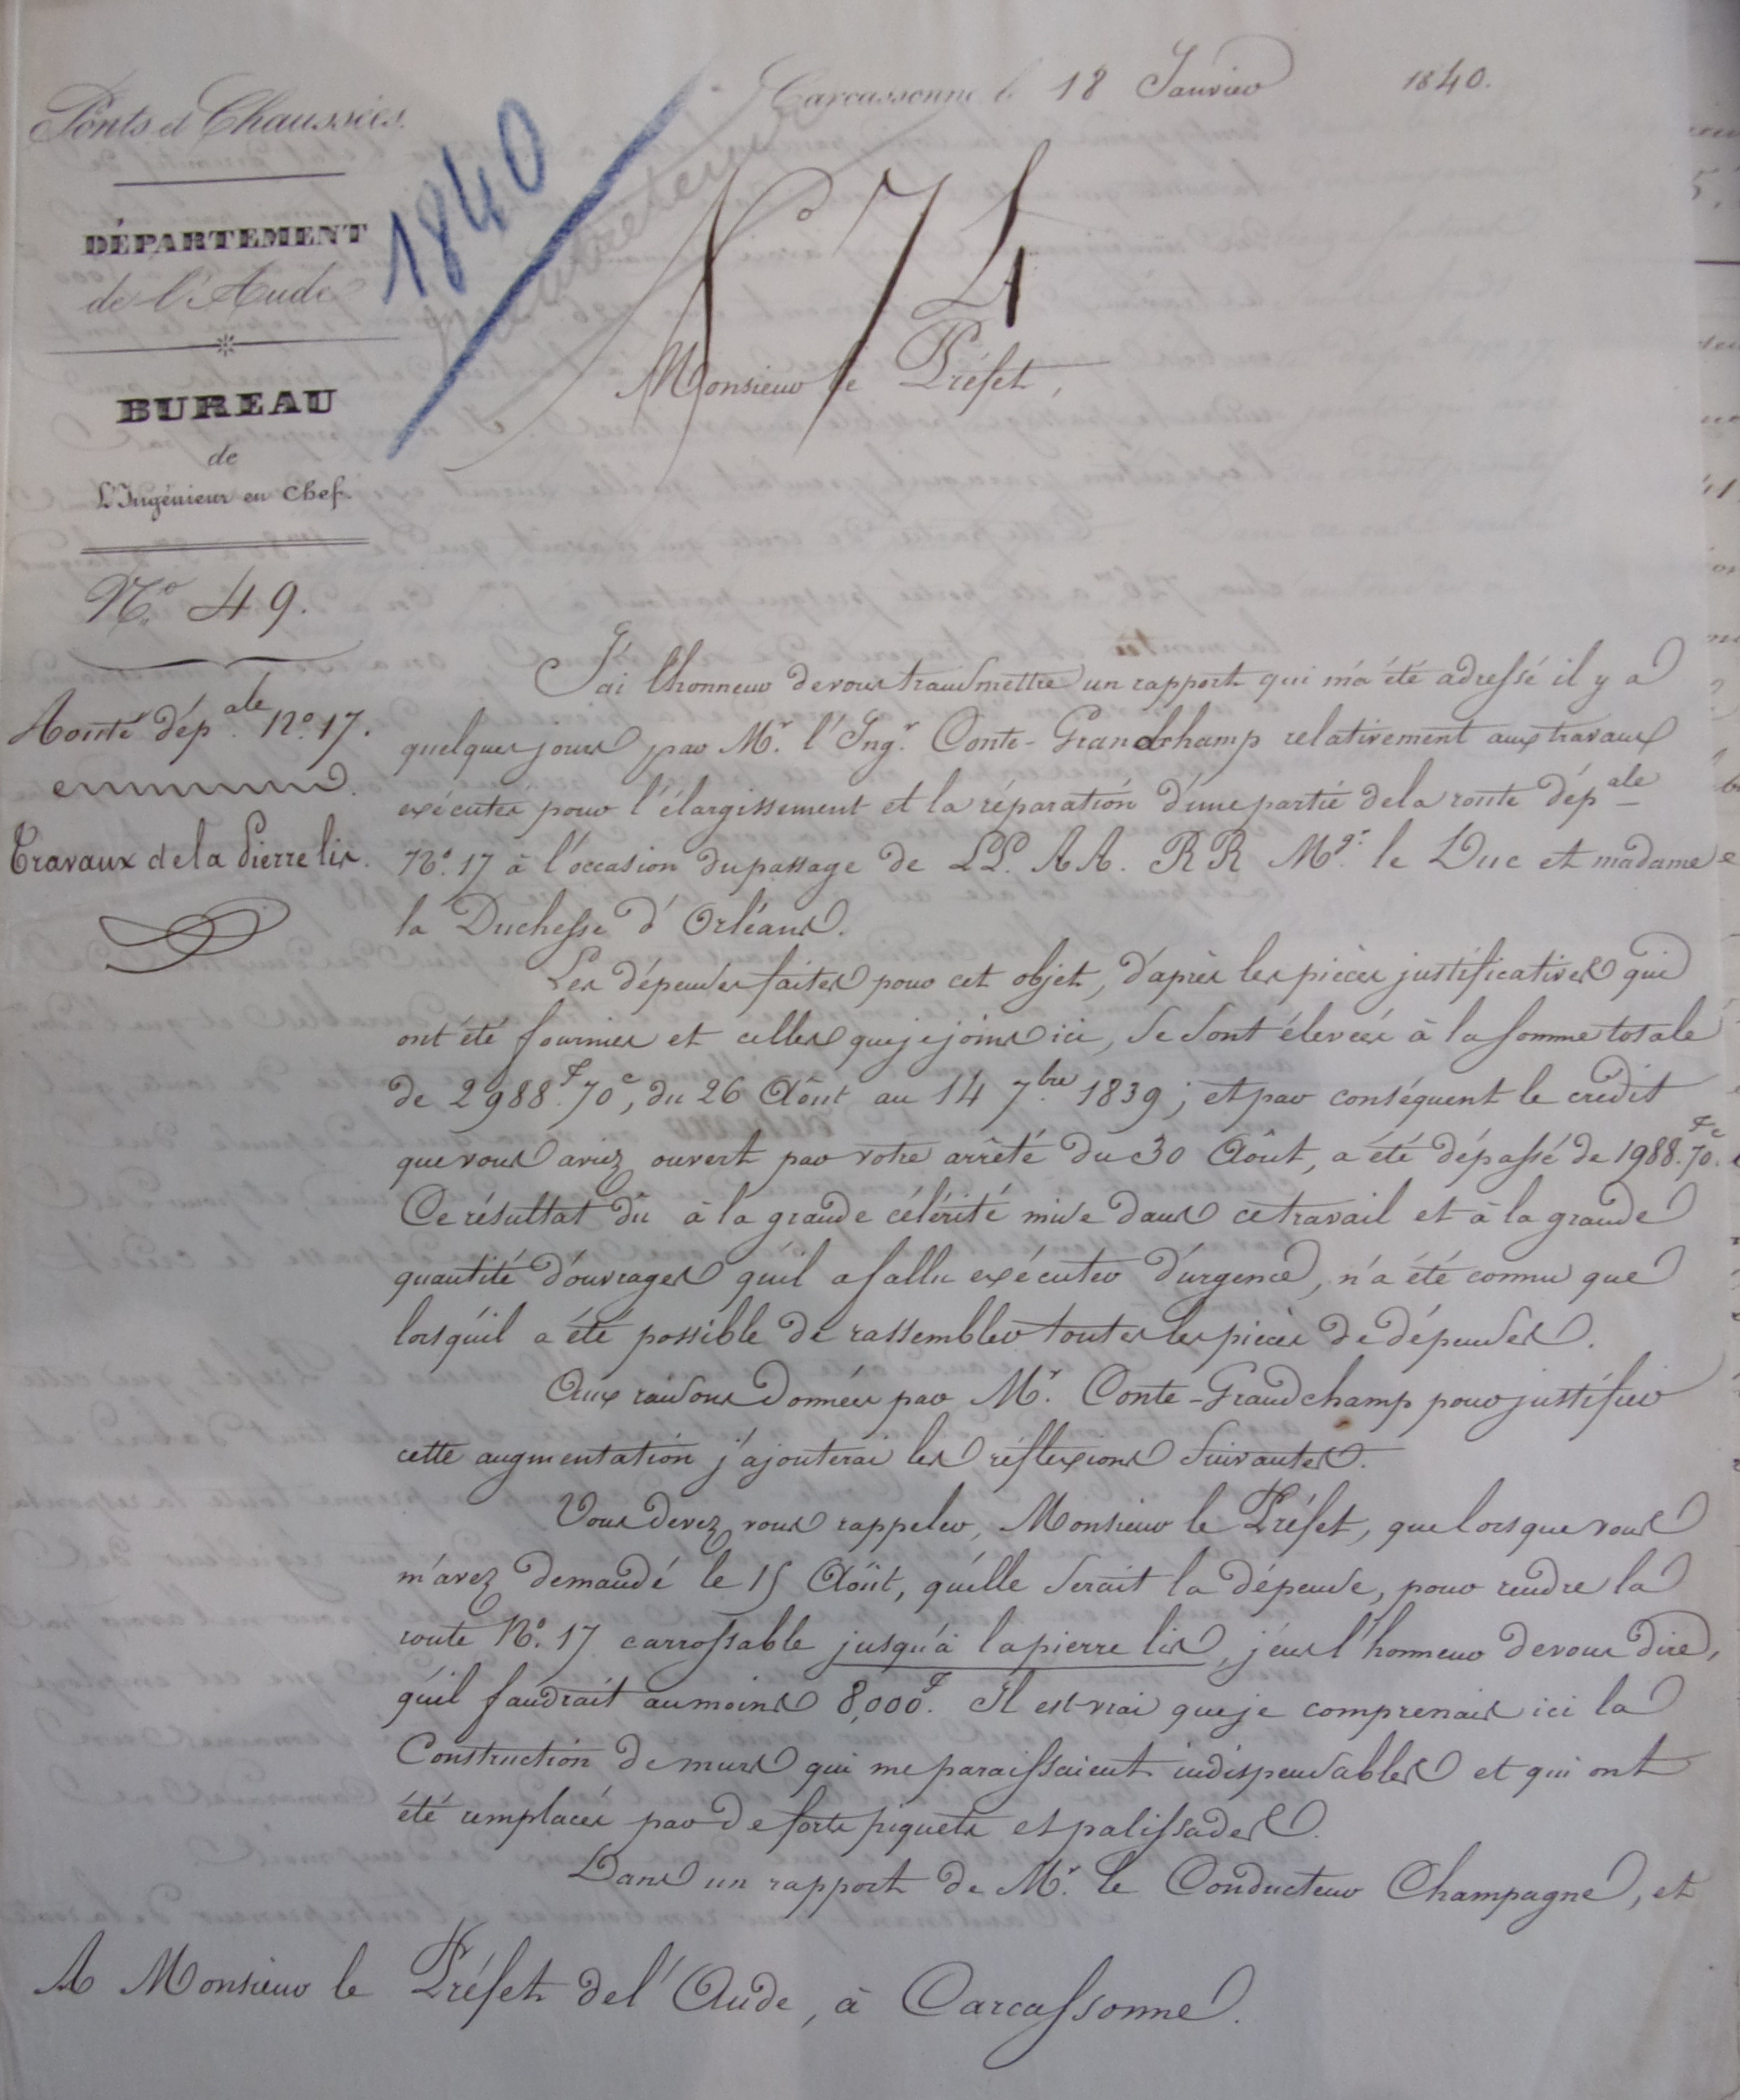 Carcassonne le 18 Janvier 1840.
Ponts et Chaussées.
DÉPARTEMENT
de l'Aude
BUREAU
de
L'Ingénieur en Chef.
N.° 49.
Route dép.ale N.° 17.
Travaux de la Pierre lis.
1840
174
Monsieur le Préfet,
J'ai l'honneur de vous transmettre un rapport qui m'a été adressé il y a
quelques jours par Mr. l'Ingr. Conte-Grandchamp relativement aux travaux
exécutés pour l'élargissement et la réparation d'une partie de la route dép.ale
N.° 17 à l'occasion du passage de LL. AA. RR Mgr. le Duc et madame
la Duchesse d'Orléans.
Les dépenses faites pour cet objet, d'après les pièces justificatives qui
ont été fournies et celles que je joins ici, se sont élevées à la somme totale
de 2988.f 70c, du 26 Août au 14 7.bre 1839; et par conséquent le crédit
que vous aviez ouvert par votre arrêté du 30 Août, a été dépassé de 1988.f 70.c
Ce résultat dû à la grande célérité mise dans ce travail et à la grande
quantité d'ouvrages qu'il a fallu exécuter d'urgence, n'a été connu que
lorsqu'il a été possible de rassembler toutes les pièces de dépenses.
Aux raisons données par Mr. Conte-Grandchamp pour justifier
cette augmentation j'ajouterai les réflexions suivantes.
Vous devez vous rappeler, Monsieur le Préfet, que lorsque vous
m'avez demandé le 15 Août, qu'elle serait la dépense, pour rendre la
route N.° 17 carrossable jusqu'à la pierre lis, j'eus l'honneur de vous dire,
qu'il faudrait au moins 8,000.f Il est vrai que je comprenais ici la
Construction de murs qui me paraissaient indispensables et qui ont
été remplacés par de forts piquets et palissades.
Dans un rapport de Mr. le Conducteur Champagne, et
A Monsieur le Préfet de l'Aude, à Carcassonne.